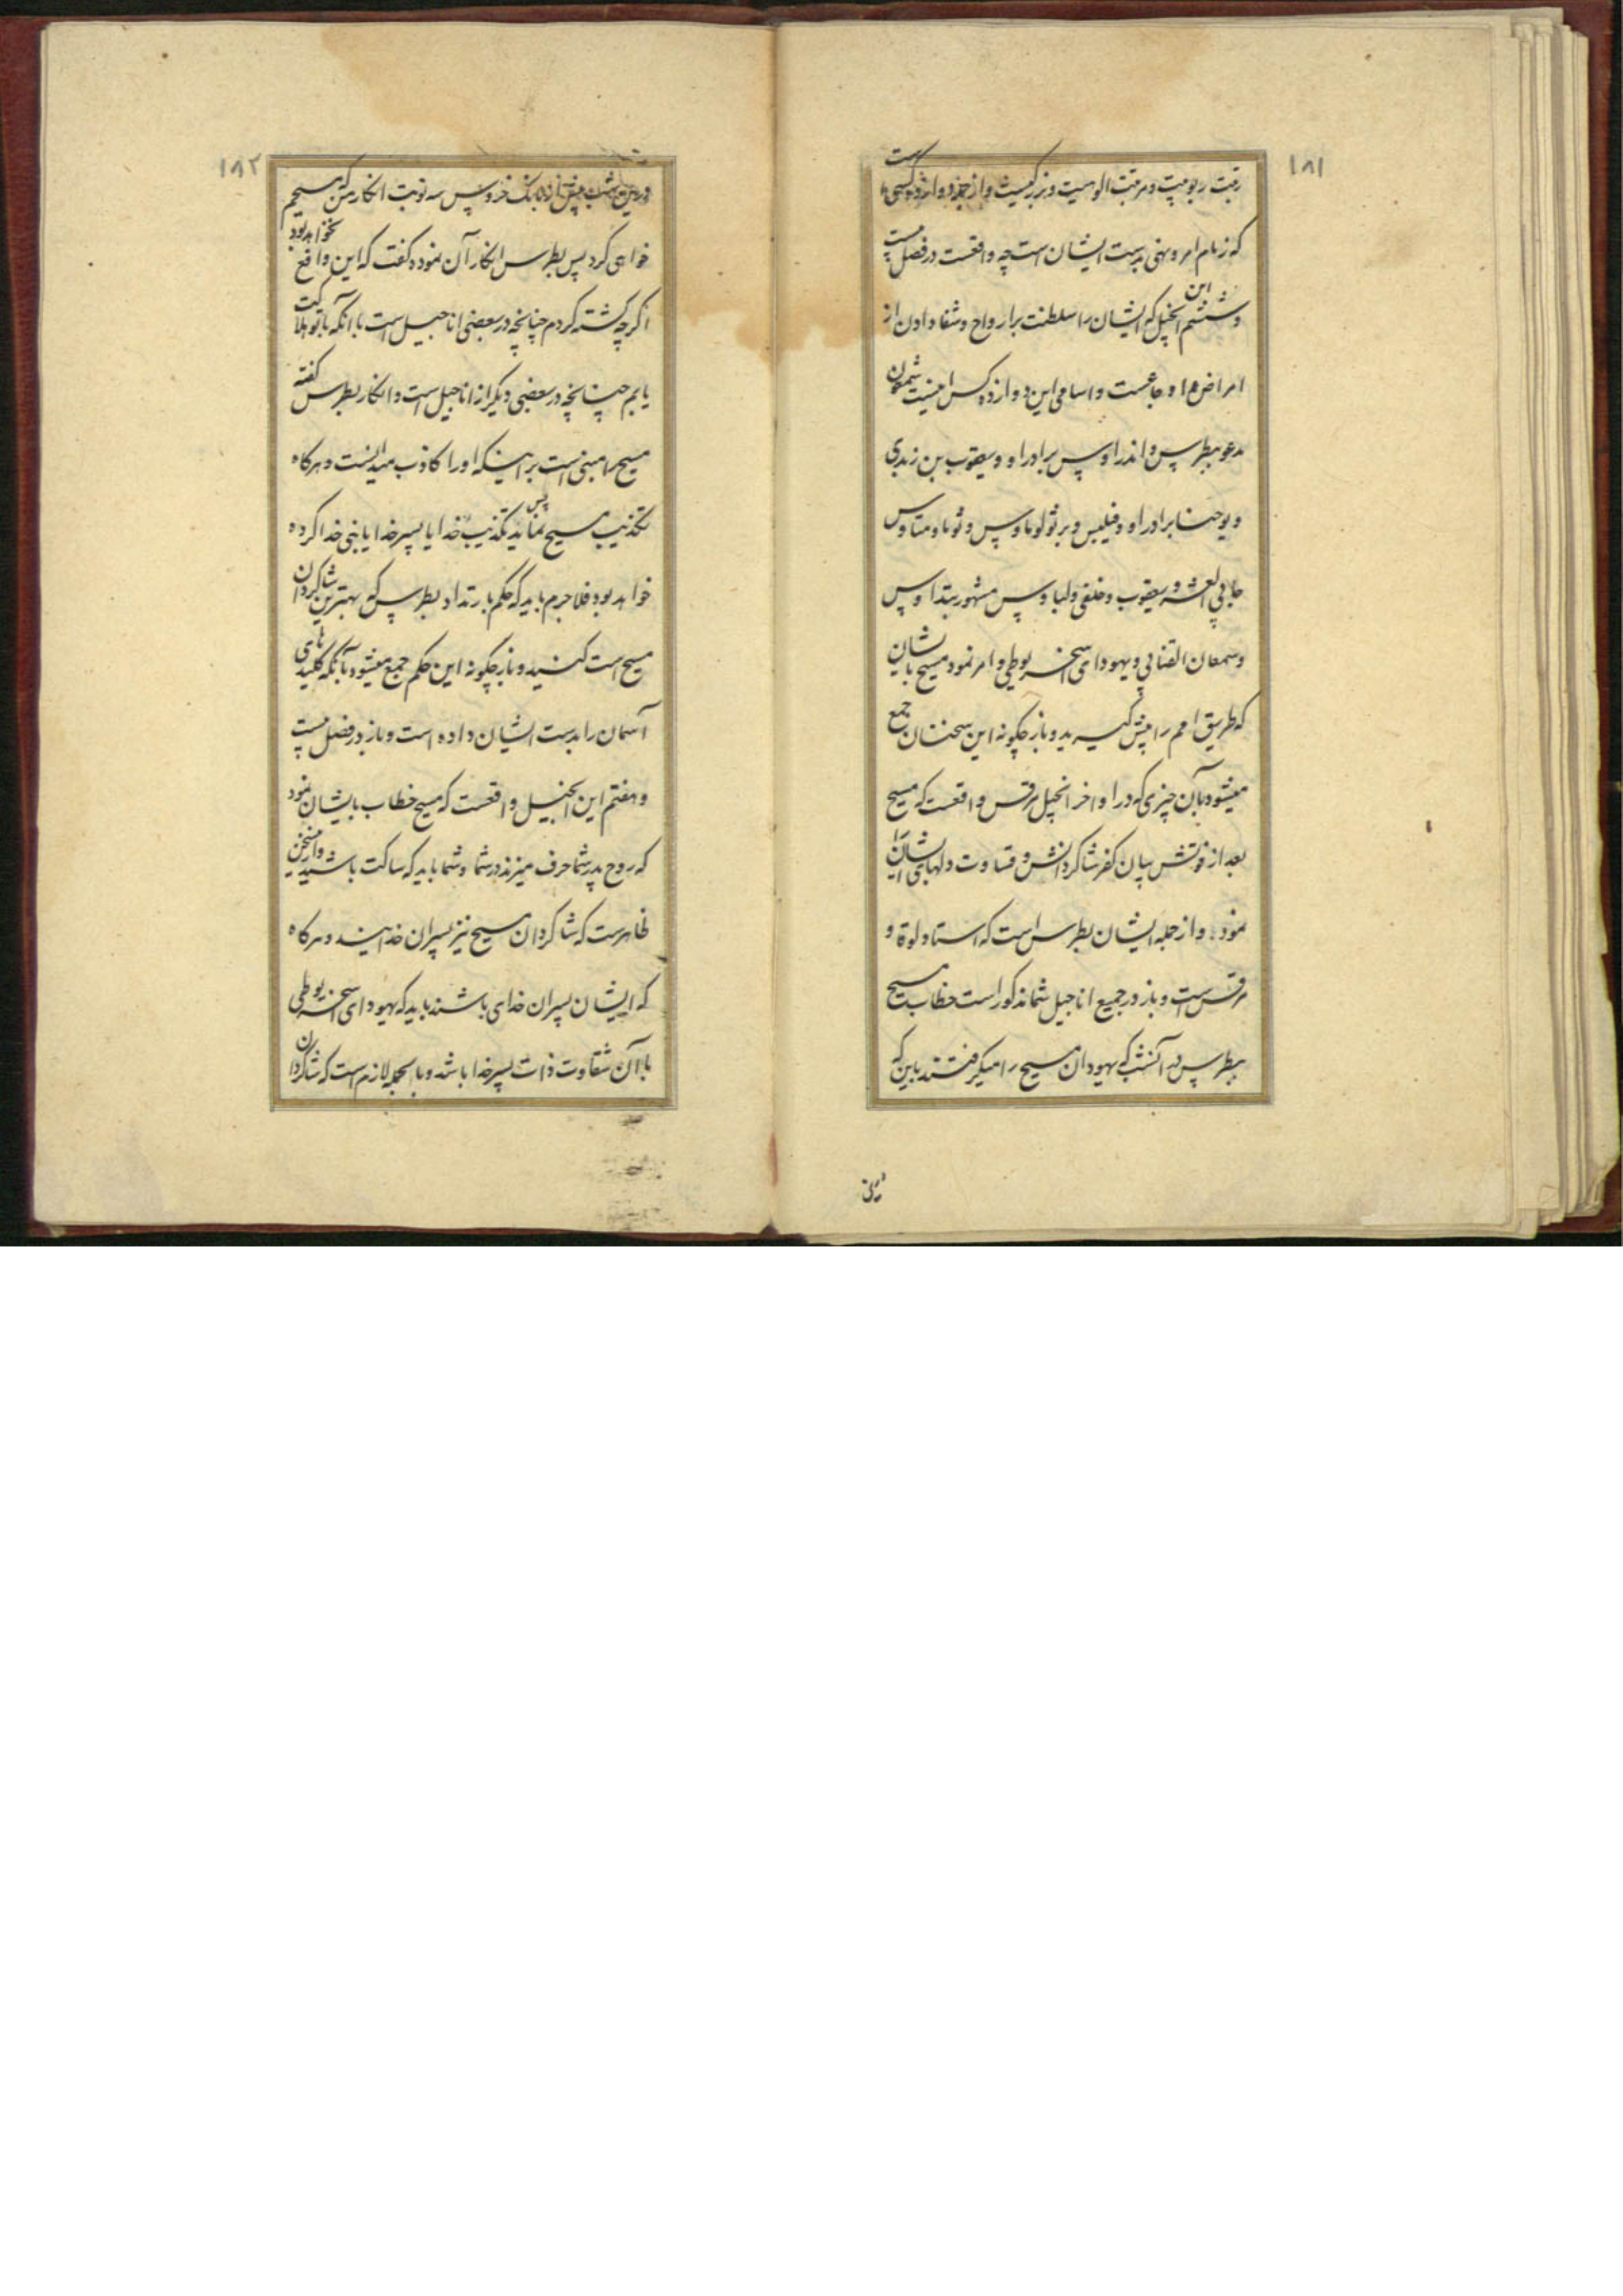 ۱۸۱
رتبت ربوبیت و مرتبت الوهیت و بزرگیست و از جزو و از ده کسی است
که زمام امر و نهی بدست ایشان است چه واقعست در فصل بیست
و ششم این انجیل که ایشان را سلطنت بر ارواح و شفا دادن از
امراض و اوجاعست و اسامی این دوازده کس اینست شمعون
مدعو ببطرس و اندراوس برادر او و یعقوب بن زبدی
و یوحنا برادر او و فیلبس و برثولوماوس و ثوما و متاوس
جابی العشر و یعقوب و خلفی و لباوس مشهور بتداوس
و سمعان القنانی و یهودای اسخریوطی و امر نمود مسیح بایشان
که طریق امم را پیش گیرید و باز چگونه این سخنان جمع
میشود بآن چیزی که در اواخر انجیل مرقس واقعست که مسیح
بعد از فوتش بیان کفر شاگردانش و قساوت دلهای ایشان را
نمود و از جمله ایشان بطرس است که استاد لوقا و
مرقس است و باز در جمیع اناجیل شما مذکور است خطاب مسیح
ببطرس در آنشب که یهودان مسیح را میگرفتند باین که
درین
۱۸۲
درین شب پیش از بانک خروس سه نوبت انکار من که مسیحم
خواهی کرد پس بطرس انکار آن نموده گفت که این واقع نخواهد بود
اگرچه کشته گردم چنانچه در بعضی اناجیل است با آنکه با تو هلاکت
یابم چنانچه در بعضی دیگر از اناجیل است و انکار بطرس گفته
مسیح را مبنی است بر اینکه او را کاذب میدانست و هرگاه
تکذیب مسیح نماید پس تکذیب خدا یا پسر خدا یا نبی خدا کرده
خواهد بود فلاجرم باید که حکم بارتداد بطرس که بهترین شاگردان
مسیح است کنید و باز چگونه این حکم جمع میشود بآنکه کلیدهای
آسمان را بدست ایشان داده است و باز در فصل بیست
و هفتم این انجیل واقعست که مسیح خطاب بایشان نمود
که روح پدر شما حرف میزند در شما و شما باید که ساکت باشید و از این سخن
ظاهرست که شاگردان مسیح نیز پسران خدایند و هرگاه
که ایشان پسران خدای باشند باید که یهودای اسخریوطی
با آن شقاوت ذات پسر خدا باشد و بالجمله لازم است که شاگردان